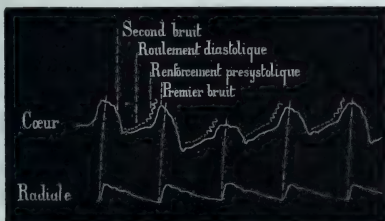 Second bruit
Roulement diastolique
Renforcement presystolique
Premier bruit
Cœur
Radiale